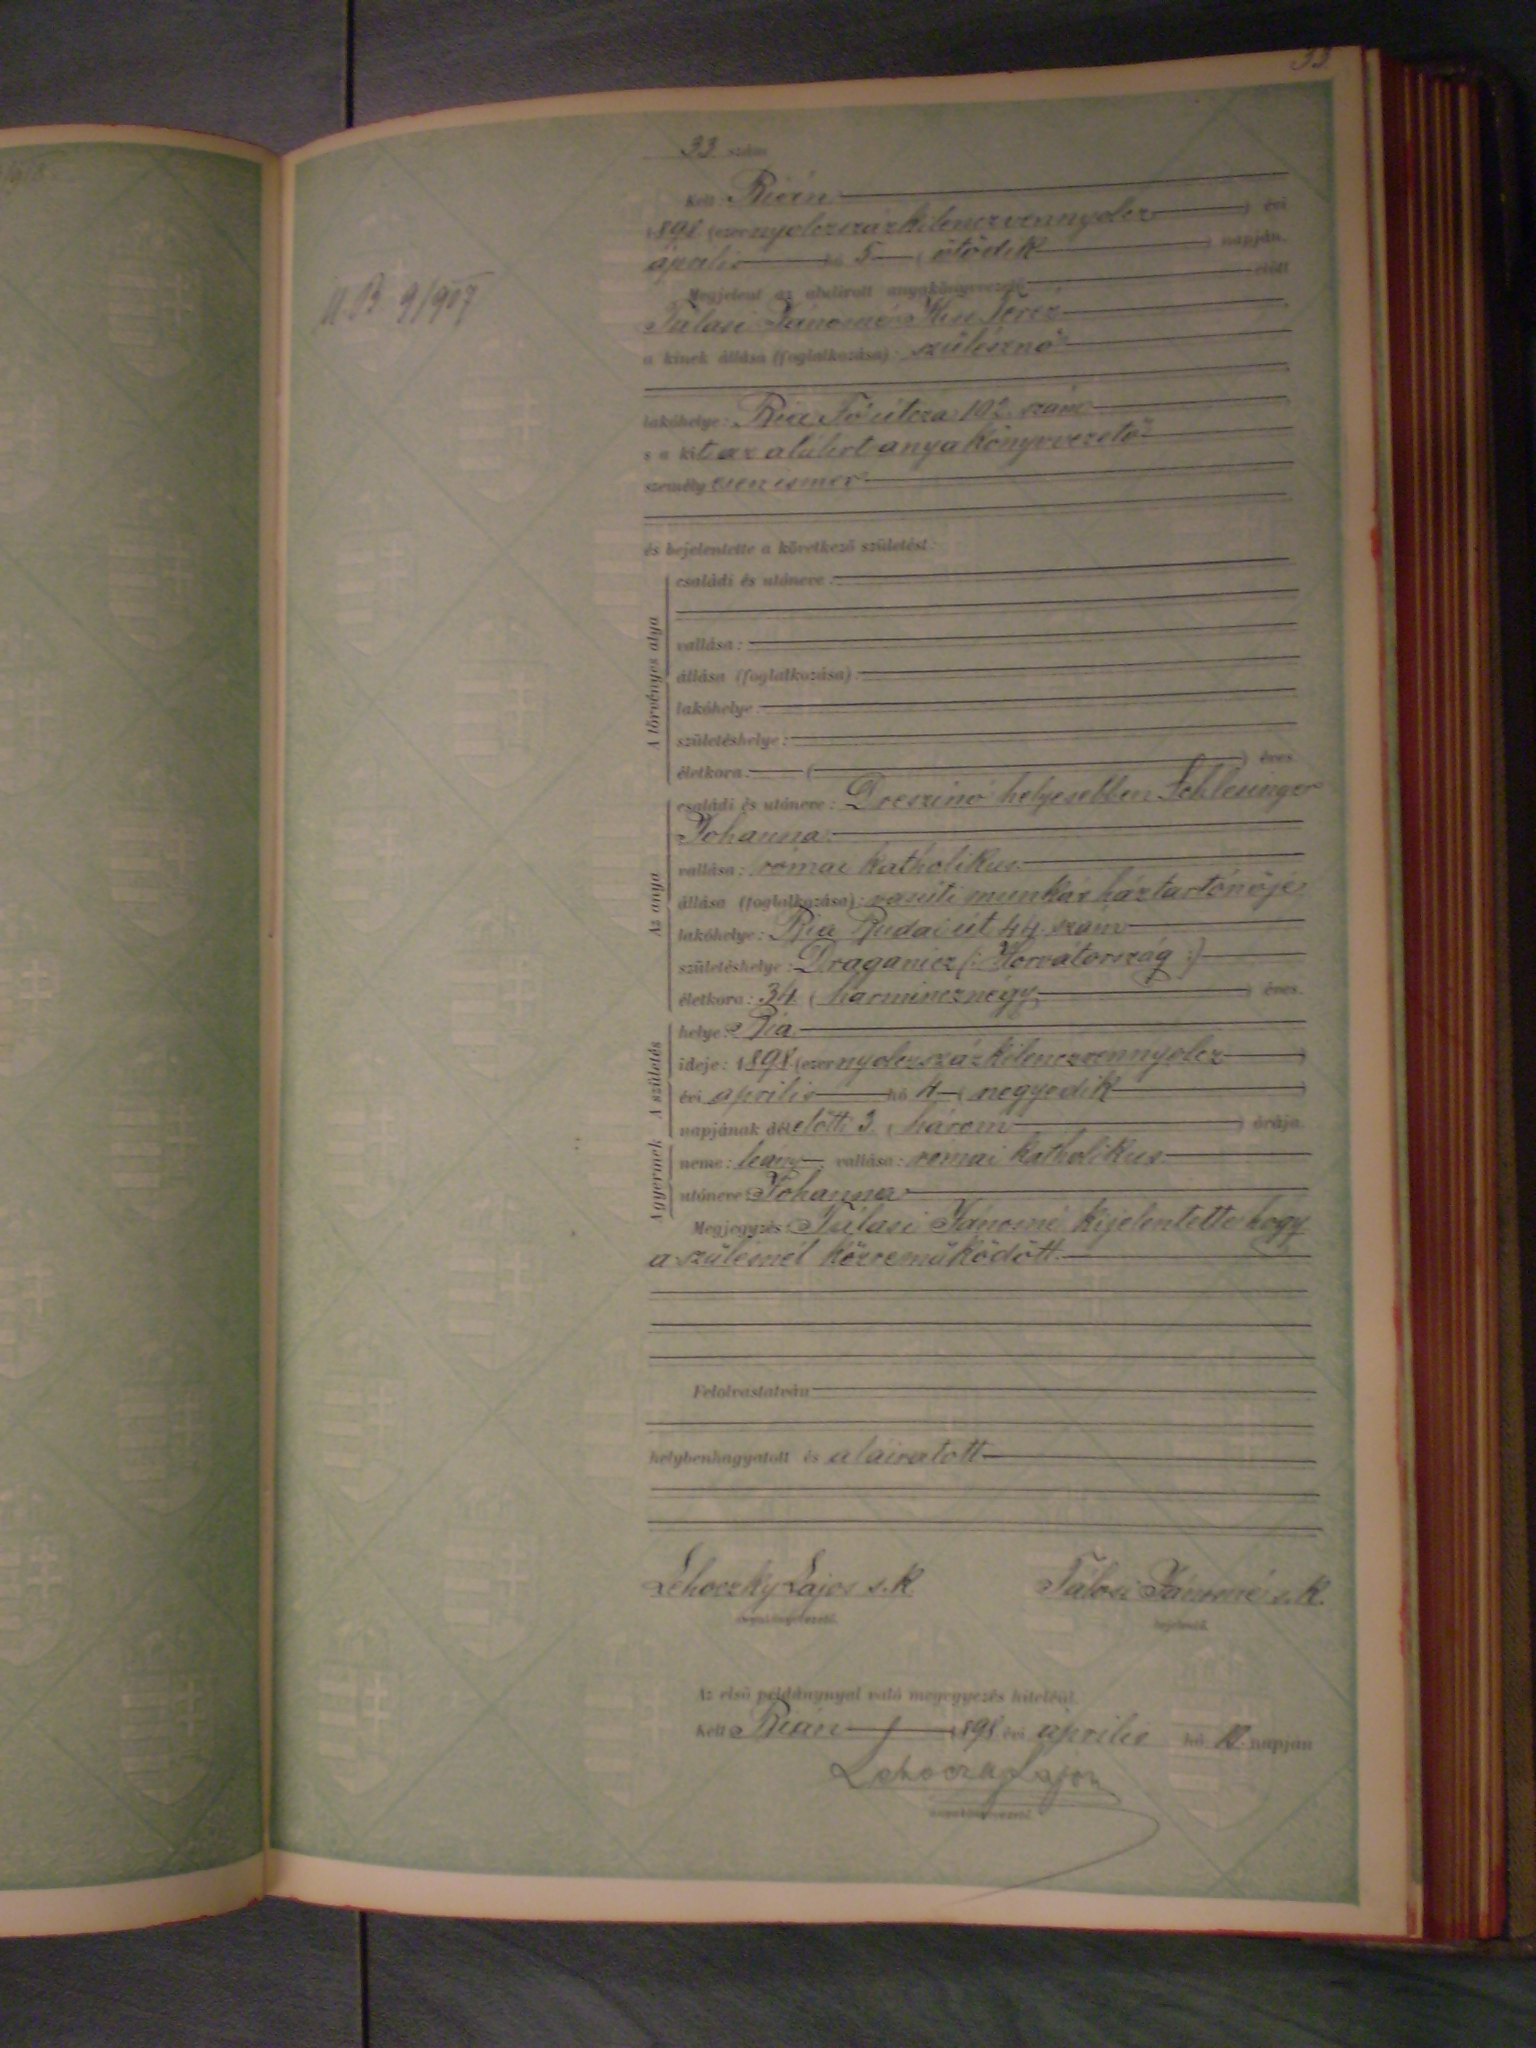 33
33 szám
Kelt Bián
1898 (ezernyolczszázkilenczvennyolcz) évi
április hó 5 (ötödik) napján.
Megjelent az alulirott anyakönyvvezető előtt
Tálasi Jánosné Kiss Teréz
a kinek állása (foglalkozása): szülésznő
lakóhelye: Bia Fő útcza 192. szám
s a kit az alúlirt anyakönyvvezető
személyesen ismer
és bejelentette a következő születést:
A törvényes atya
családi és utóneve:
vallása:
állása (foglalkozása):
lakóhelye:
születéshelye:
életkora: ( ) éves
Az anya
családi és utóneve: Dreszino helyesebben Schlesinger
Johanna
vallása: római katholikus
állása (foglalkozása): vasúti munkás háztartónője
lakóhelye: Bia Budai út 44. szám
születéshelye: Draganicz (: Horvátország :)
életkora: 34 (harmincznégy) éves.
A születés
helye: Bia
ideje: 1898 (ezernyolczszázkilenczvennyolcz)
évi április hó 4 (negyedik)
napjának délelőtti 3 (három) órája.
A gyermek
neme: leány vallása: római katholikus
utóneve: Johanna
Megjegyzés: Tálasi Jánosné kijelentette hogy
a szülésnél közreműködött.
Felolvastatván
helybenhagyatott és aláiratott
Lehoczky Lajos s.k. Tálosi Jánosné s.k.
anyakönyvvezető. bejelentő.
Az első példánynyal való megegyezés hiteléül.
Kelt Bián 1898 évi április hó napján
Lehoczky Lajos
anyakönyvvezető.